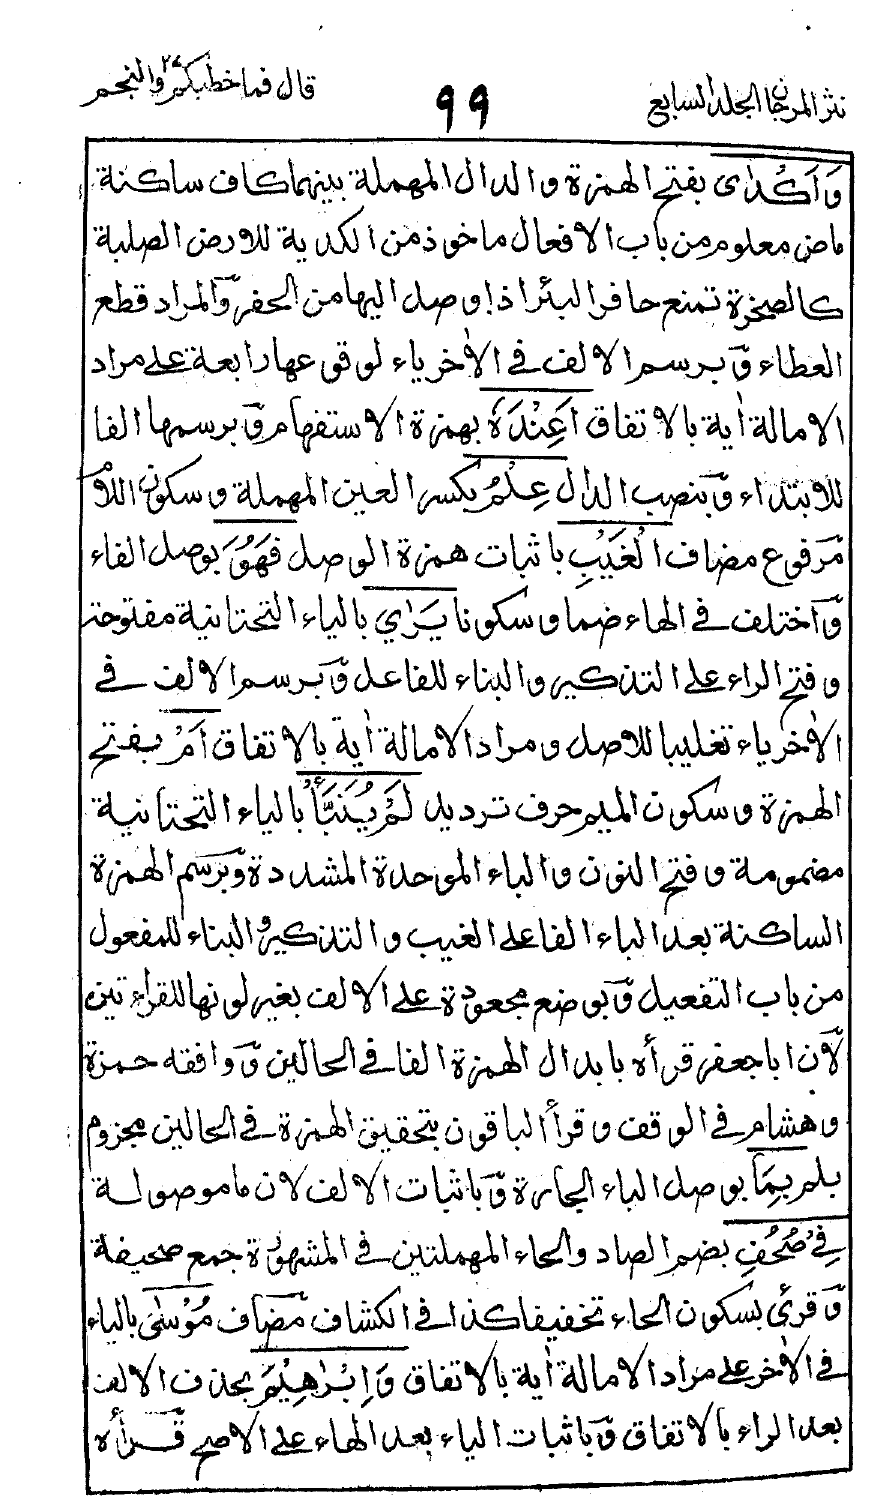 نثر المرجان الجلد السابع
٩٩
قال فما خطبكم ٢٧ والنجم
وَاَكْدٰى بفتح الهمزة والدال المهملة بينهما كاف ساكنة
ماض معلوم من باب الافعال ماخوذ من الكدية للارض الصلبة
كالصخرة تمنع حافر البئر اذا وصل اليها من الحفر والمراد قطع
العطاء وبرسم الالف فى الاٰخر ياء لوقوعها رابعة على مراد
الامالة اٰية بالاتفاق اَعِنْدَهٗ بهمزة الاستفهام وبرسمها الفا
للابتداء وبنصب الدال عِلْمُ بكسر العين المهملة وسكون اللام
مرفوع مضاف الْغَيْبِ باثبات همزة الوصل فَهُوَ بوصل الفاء
واختلف فى الهاء ضما وسكونا يَرٰي بالياء التحتانية مفتوحة
وفتح الراء على التذكير والبناء للفاعل وبرسم الالف فى
الاٰخر ياء تغليبا للاصل ومراد الامالة اٰية بالاتفاق اَمْ بفتح
الهمزة وسكون الميم حرف ترديد لَمْ يُنَبَّأْ بالياء التحتانية
مضمومة وفتح النون والباء الموحدة المشددة وبرسم الهمزة
الساكنة بعد الباء الفا على الغيب والتذكير والبناء للمفعول
من باب التفعيل وبوضع مجعودة على الالف بغير لونها للقراءتين
لان اباجعفر قرأه بابدال الهمزة الفا فى الحالين ووافقه حمزة
وهشام فى الوقف وقرأ الباقون بتحقيق الهمزة فى الحالين مجزوم
بلم بِمَا بوصل الباء الجارة وباثبات الالف لان ما موصولة
فِيْ صُحُفِ بضم الصاد والحاء المهملتين فى المشهورة جمع صحيفة
وقرئ بسكون الحاء تخفيفا كذا فى الكشاف مضاف مُوْسٰى بالياء
فى الاٰخر على مراد الامالة اٰية بالاتفاق وَاِبْرٰهِيْمَ بحذف الالف
بعد الراء بالاتفاق وباثبات الياء بعد الهاء على الاصح قرأه